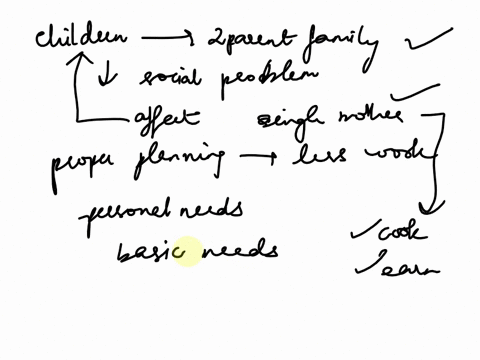 children → 2parent family ✓
↓ social problem
affect single mother ✓
proper planning → less work
personel needs
✓ cook
basic needs
✓ earn